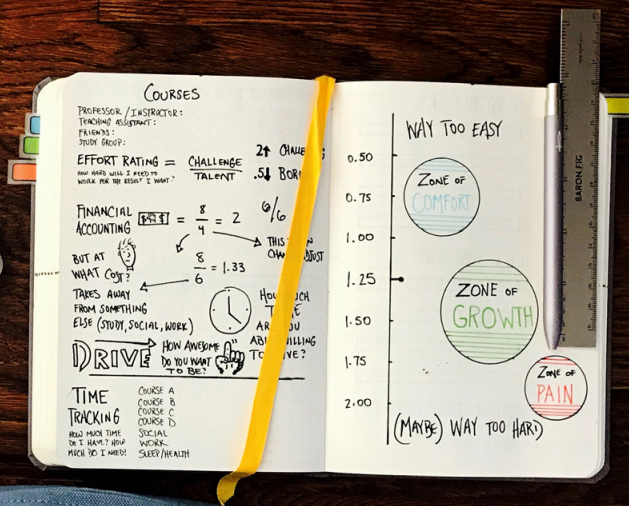 COURSES
PROFESSOR / INSTRUCTOR:
TEACHING ASSISTANT:
FRIENDS:
STUDY GROUP:
EFFORT RATING = CHALLENGE
TALENT
HOW HARD WILL I NEED TO
WORK FOR THE RESULT I WANT?
2↑
.5↓
FINANCIAL
ACCOUNTING
= 8/4 = 2
6/6
BUT AT
WHAT COST?
8/6 = 1.33
THIS
ADJUST
TAKES AWAY
FROM SOMETHING
ELSE (STUDY, SOCIAL, WORK)
ARE YOU
TO
DRIVE
HOW AWESOME
DO YOU WANT
TO BE?
TIME
TRACKING
HOW MUCH TIME
DO I HAVE? HOW
MUCH DO I NEED?
COURSE A
COURSE B
COURSE C
COURSE D
SOCIAL
WORK
SLEEP/HEALTH
WAY TOO EASY
0.50
0.75
1.00
1.25
1.50
1.75
2.00
ZONE OF
COMFORT
ZONE OF
GROWTH
ZONE OF
PAIN
(MAYBE) WAY TOO HARD
BARON FIG